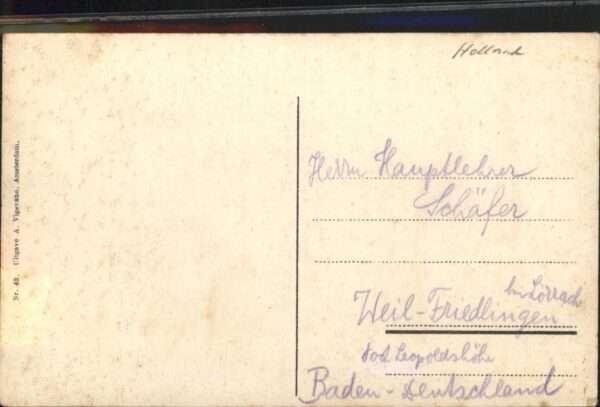 Holland
Nr. 49. Uitgave A. Vigevano, Amsterdam.
Herrn Hauptlehrer
Schäfer
bei Lörrach
Weil-Friedlingen
Post Leopoldshöhe
Baden-Deutschland